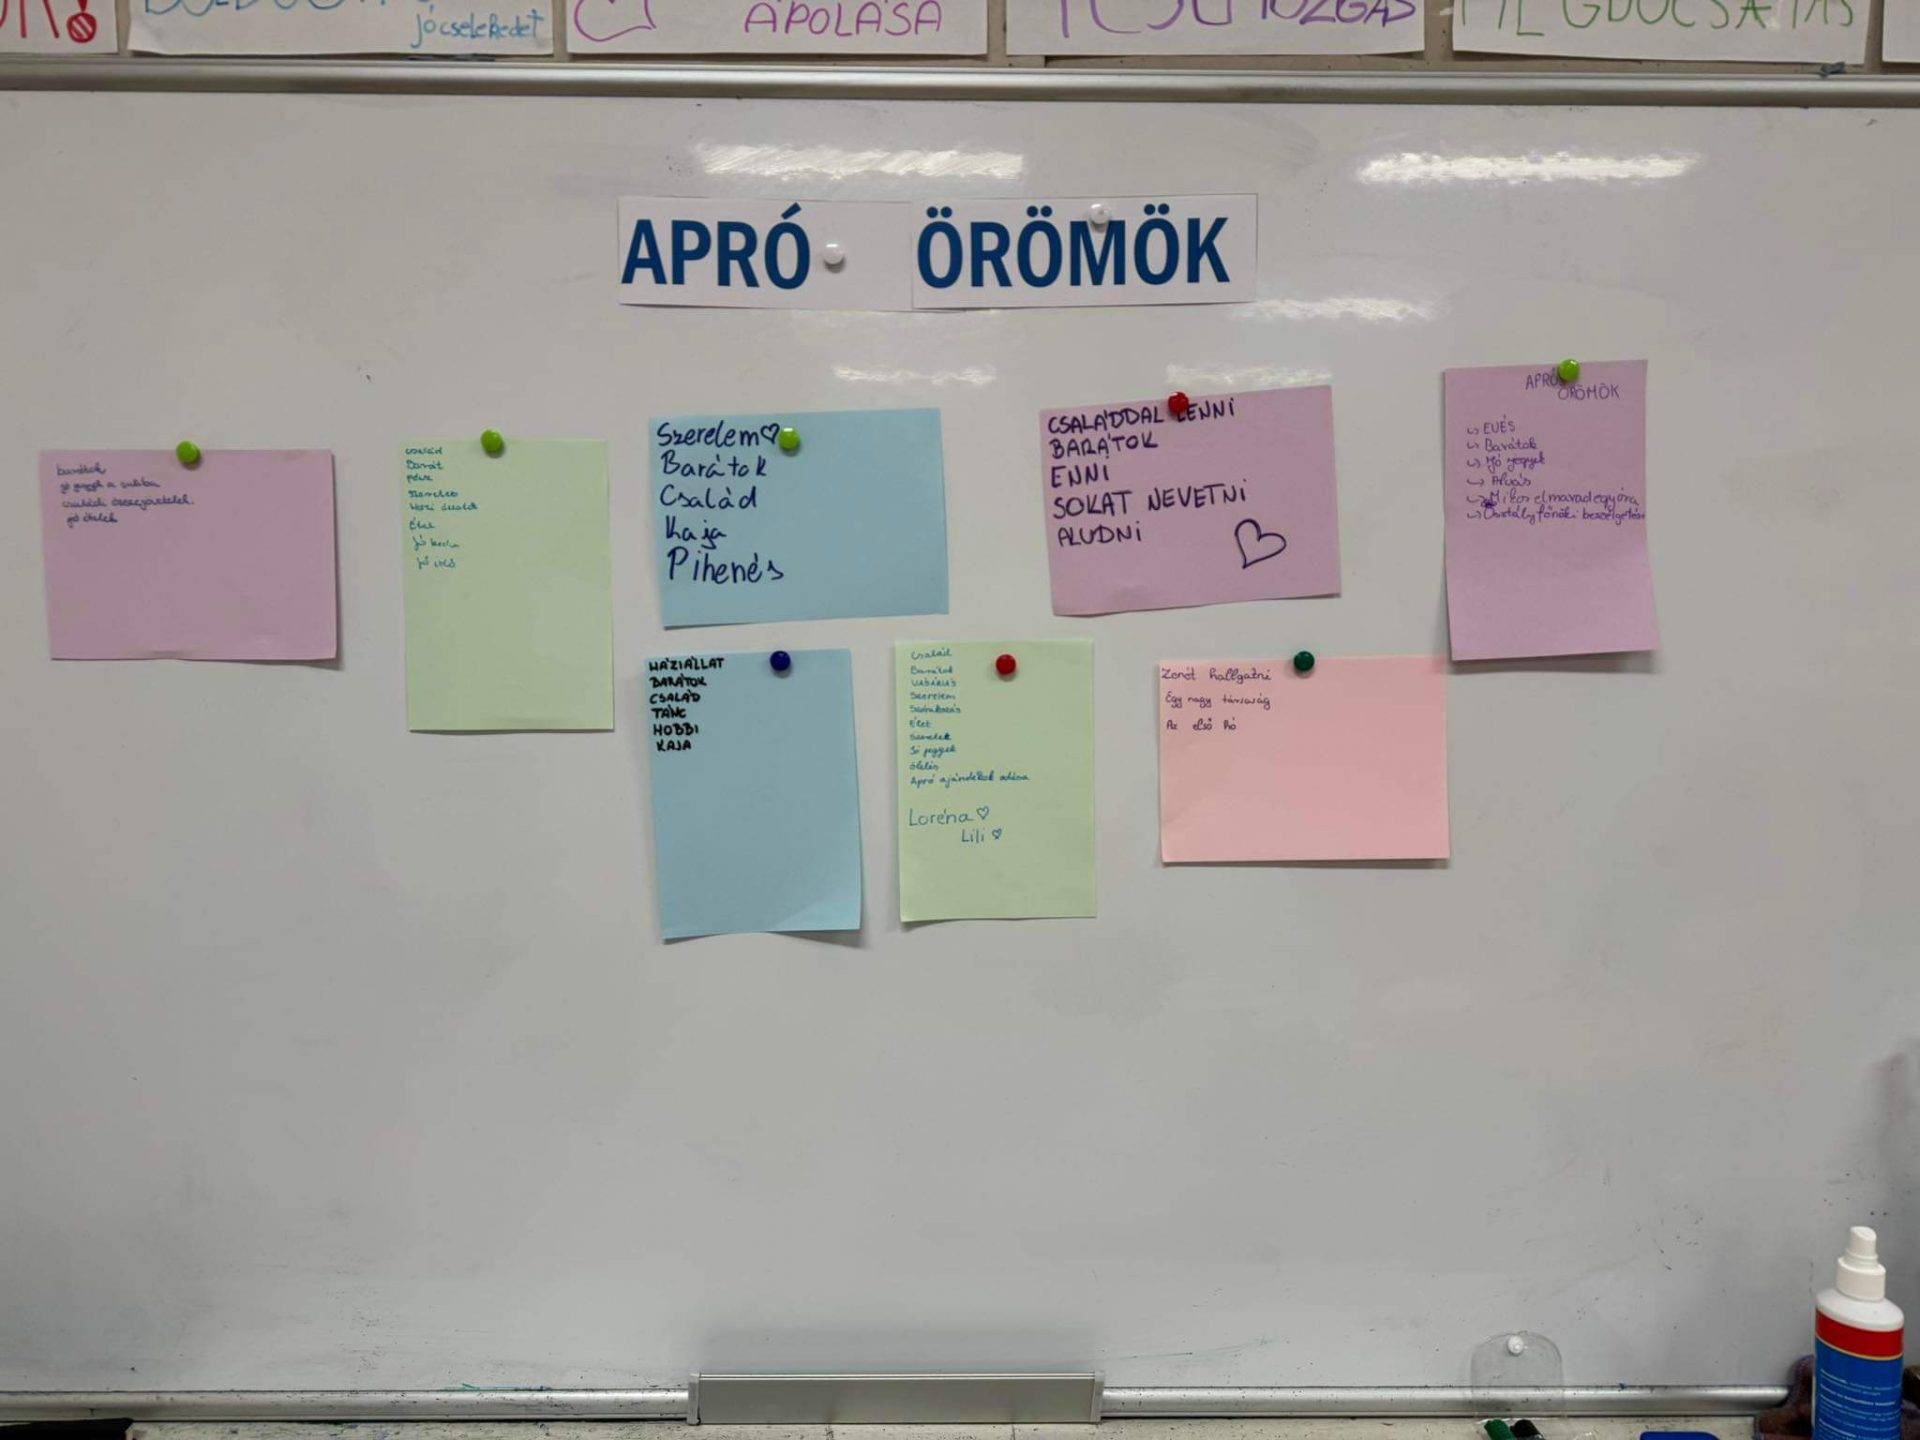 jócselekedet
ÁPOLÁSA
MOZGÁS
MEGBOCSÁTÁS
APRÓ ÖRÖMÖK
barátok
jó jegyek a suliba
családi összejövetelek.
jó ételek
család
Barát
pénz
Szerelem
Étel
jó kedv
jó idő
Szerelem♡
Barátok
Család
Kaja
Pihenés
CSALÁDDAL LENNI
BARÁTOK
ENNI
SOKAT NEVETNI
ALUDNI
APRÓ
ÖRÖMÖK
↳ EVÉS
↳ Barátok
↳ Jó jegyek
↳ Alvás
↳ Mikor elmarad egy óra
↳ Osztályfőnöki beszélgetés
HÁZIÁLLAT
BARÁTOK
CSALÁD
TÁNC
HOBBI
KAJA
Család
Barátok
Szerelem
Szórakozás
Élet
Jó jegyek
ölelés
Apró ajándékok adása
Loréna ♡
Lili ♡
Zenét hallgatni
Egy nagy társaság
Az első hó